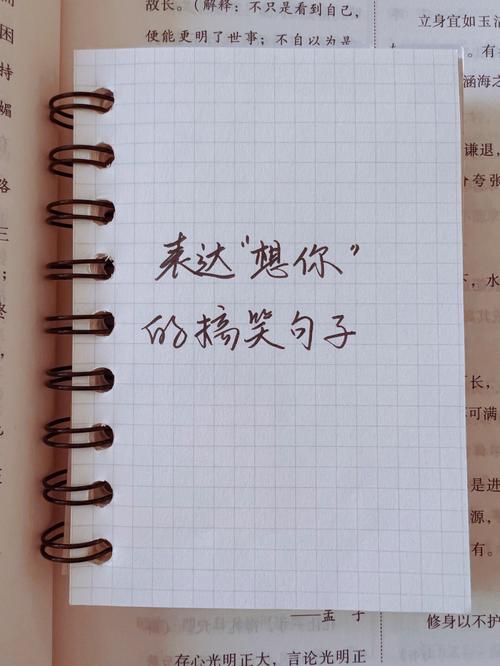 故长。（解释：不只是看到自己，
便能更明了世事；不自以为是
立身宜如玉洁
。有
涵海之
谦退，
夸张
表达“想你”
的搞笑句子
下，水
长，
可满
是进
源，
有。
——孟 子
存心光明正大，言论光明正
修身以不护
困
持
媚
路
三